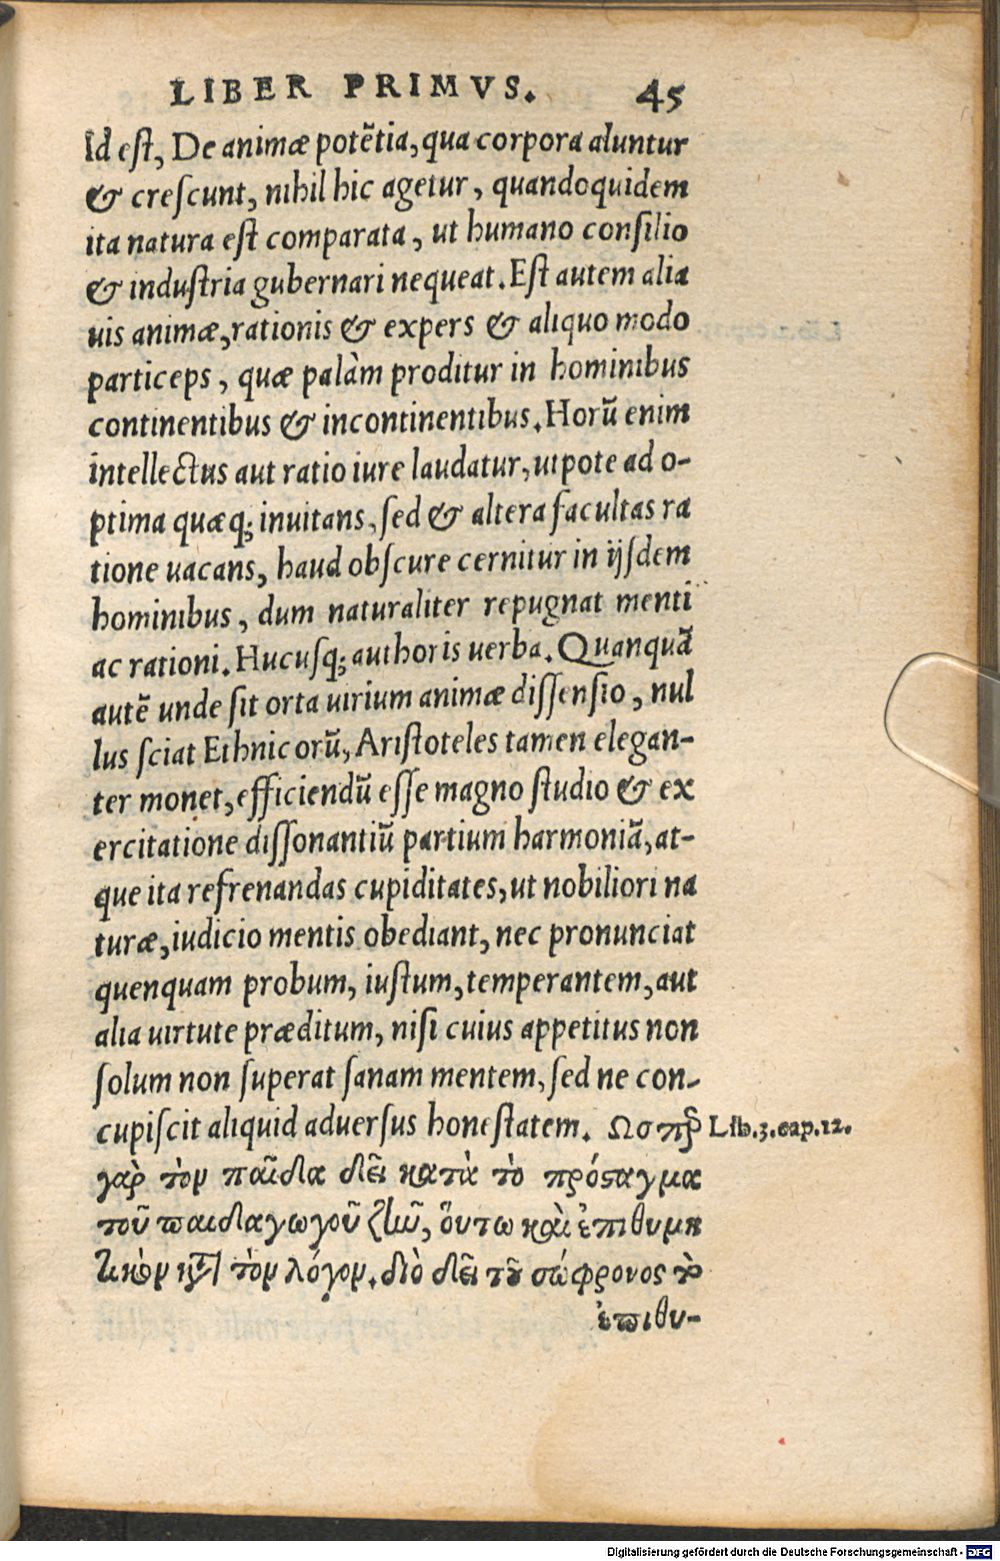 LIBER PRIMVS. 45
Id est, De animæ potẽtia, qua corpora aluntur
& crescunt, nihil hic agetur, quandoquidem
ita natura est comparata, ut humano consilio
& industria gubernari nequeat. Est autem alia
uis animæ, rationis & expers & aliquo modo
particeps, quæ palàm proditur in hominibus
continentibus & incontinentibus. Horũ enim
intellectus aut ratio iure laudatur, utpote ad o-
ptima quæq; inuitans, sed & altera facultas ra
tione uacans, haud obscure cernitur in ijsdem
hominibus, dum naturaliter repugnat menti
ac rationi. Hucusq; authoris uerba. Quanquã
autẽ unde sit orta uirium animæ dissensio, nul
lus sciat Ethnicorũ, Aristoteles tamen elegan-
ter monet, efficiendũ esse magno studio & ex
ercitatione dissonantiũ partium harmoniã, at-
que ita refrenandas cupiditates, ut nobiliori na
turæ, iudicio mentis obediant, nec pronunciat
quenquam probum, iustum, temperantem, aut
alia uirtute præditum, nisi cuius appetitus non
solum non superat sanam mentem, sed ne con-
cupiscit aliquid aduersus honestatem. Ωσπερ Lib.3.cap.12.
γαρ τὸν παῖδα δεῖ κατὰ τὸ πρόςαγμα
τοῦ παιδαγωγοῦ ζῆν, ὅυτω καὶ ἐπιθυμη
τικὸν κατὰ τὸν λόγον. διὸ δεῖ τοῦ σώφρονος τὸ
ἐπιθυ-
Digitalisierung gefördert durch die Deutsche Forschungsgemeinschaft - DFG